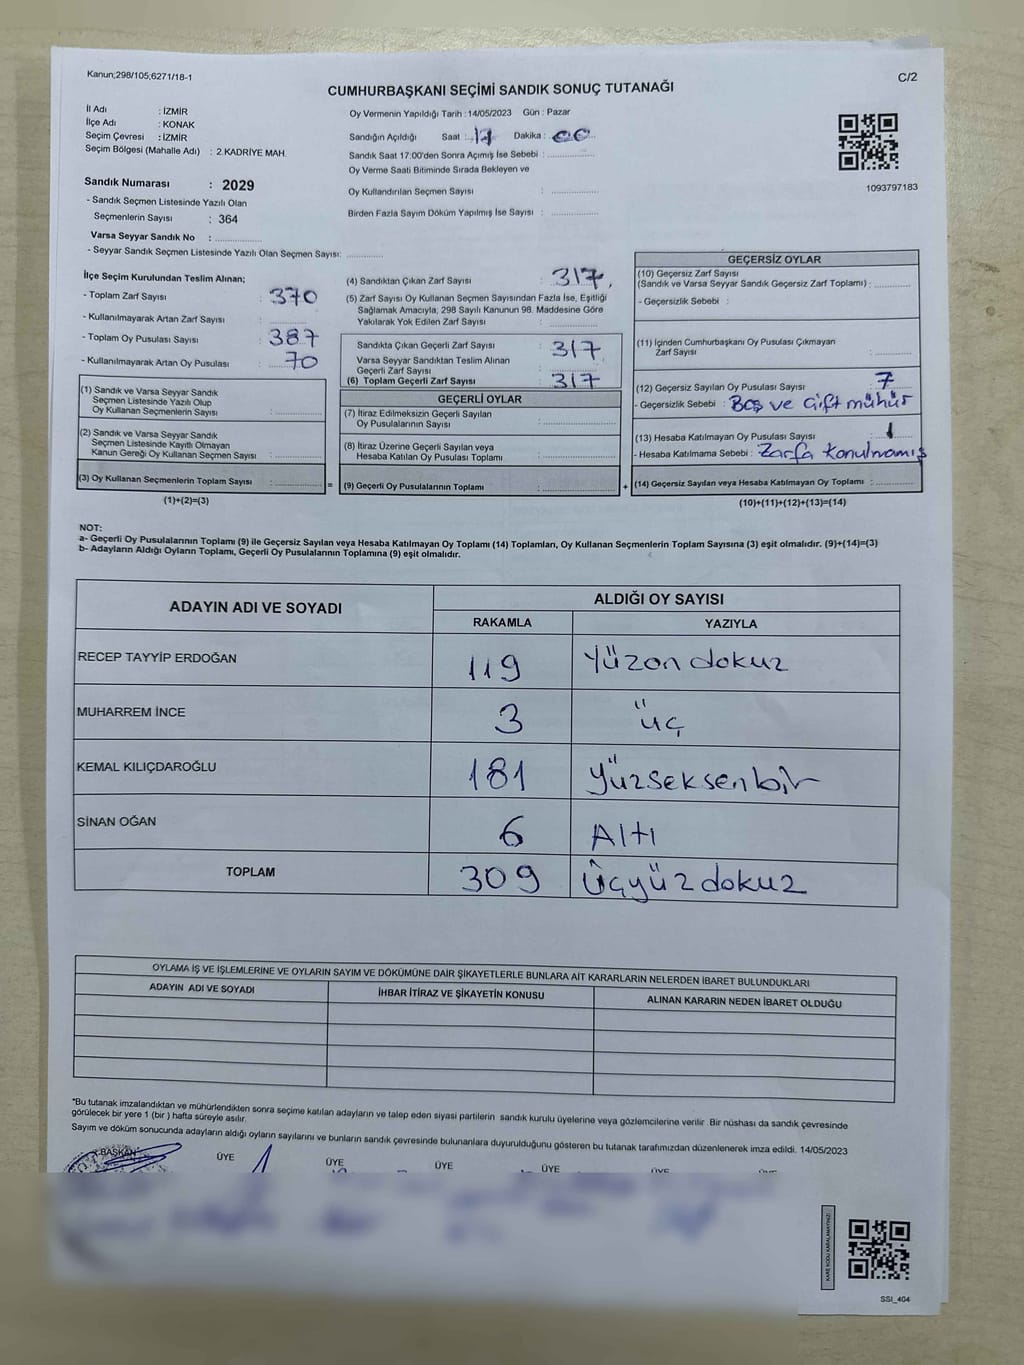 Kanun;298/105;6271/18-1
C/2
CUMHURBAŞKANI SEÇİMİ SANDIK SONUÇ TUTANAĞI
İl Adı : İZMİR
İlçe Adı : KONAK
Seçim Çevresi : İZMİR
Seçim Bölgesi (Mahalle Adı) : 2.KADRİYE MAH.
Oy Vermenin Yapıldığı Tarih : 14/05/2023 Gün : Pazar
Sandığın Açıldığı Saat : 17 Dakika : 00
Sandık Saat 17:00'den Sonra Açımış İse Sebebi :
Oy Verme Saati Bitiminde Sırada Bekleyen ve
Oy Kullandırılan Seçmen Sayısı :
Birden Fazla Sayım Döküm Yapılmış İse Sayısı :
1093797183
Sandık Numarası : 2029
- Sandık Seçmen Listesinde Yazılı Olan
Seçmenlerin Sayısı : 364
Varsa Seyyar Sandık No :
- Seyyar Sandık Seçmen Listesinde Yazılı Olan Seçmen Sayısı:
İlçe Seçim Kurulundan Teslim Alınan;
- Toplam Zarf Sayısı : 370
- Kullanılmayarak Artan Zarf Sayısı :
- Toplam Oy Pusulası Sayısı : 387
- Kullanılmayarak Artan Oy Pusulası : 70
(1) Sandık ve Varsa Seyyar Sandık
Seçmen Listesinde Yazılı Olup
Oy Kullanan Seçmenlerin Sayısı :
(2) Sandık ve Varsa Seyyar Sandık
Seçmen Listesinde Kayıtlı Olmayan
Kanun Gereği Oy Kullanan Seçmen Sayısı :
(3) Oy Kullanan Seçmenlerin Toplam Sayısı :
(1)+(2)=(3)
(4) Sandıktan Çıkan Zarf Sayısı : 317
(5) Zarf Sayısı Oy Kullanan Seçmen Sayısından Fazla İse, Eşitliği
Sağlamak Amacıyla, 298 Sayılı Kanunun 98. Maddesine Göre
Yakılarak Yok Edilen Zarf Sayısı :
Sandıkta Çıkan Geçerli Zarf Sayısı : 317
Varsa Seyyar Sandıktan Teslim Alınan
Geçerli Zarf Sayısı :
(6) Toplam Geçerli Zarf Sayısı : 317
GEÇERLİ OYLAR
(7) İtiraz Edilmeksizin Geçerli Sayılan
Oy Pusulasının Sayısı :
(8) İtiraz Üzerine Geçerli Sayılan veya
Hesaba Katılan Oy Pusulası Toplamı :
= (9) Geçerli Oy Pusulalarının Toplamı :
GEÇERSİZ OYLAR
(10) Geçersiz Zarf Sayısı
(Sandık ve Varsa Seyyar Sandık Geçersiz Zarf Toplamı) :
- Geçersizlik Sebebi :
(11) İçinden Cumhurbaşkanı Oy Pusulası Çıkmayan
Zarf Sayısı :
(12) Geçersiz Sayılan Oy Pusulası Sayısı : 7
- Geçersizlik Sebebi : Boş ve Çift mühür
(13) Hesaba Katılmayan Oy Pusulası Sayısı : 1
- Hesaba Katılmama Sebebi : Zarfa Konulmamış
+ (14) Geçersiz Sayılan veya Hesaba Katılmayan Oy Toplamı :
(10)+(11)+(12)+(13)=(14)
NOT:
a- Geçerli Oy Pusulalarının Toplamı (9) ile Geçersiz Sayılan veya Hesaba Katılmayan Oy Toplamı (14) Toplamları, Oy Kullanan Seçmenlerin Toplam Sayısına (3) eşit olmalıdır. (9)+(14)=(3)
b- Adayların Aldığı Oyların Toplamı, Geçerli Oy Pusulalarının Toplamına (9) eşit olmalıdır.
ADAYIN ADI VE SOYADI
ALDIĞI OY SAYISI
RAKAMLA YAZIYLA
RECEP TAYYİP ERDOĞAN 119 Yüzon dokuz
MUHARREM İNCE 3 üç
KEMAL KILIÇDAROĞLU 181 Yüzseksenbir
SİNAN OĞAN 6 Altı
TOPLAM 309 Üçyüz dokuz
OYLAMA İŞ VE İŞLEMLERİNE VE OYLARIN SAYIM VE DÖKÜMÜNE DAİR ŞİKAYETLERLE BUNLARA AİT KARARLARIN NELERDEN İBARET BULUNDUKLARI
ADAYIN ADI VE SOYADI İHBAR İTİRAZ VE ŞİKAYETİN KONUSU ALINAN KARARIN NEDEN İBARET OLDUĞU
*Bu tutanak imzalandıktan ve mühürlendikten sonra seçime katılan adayların ve talep eden siyasi partilerin sandık kurulu üyelerine veya gözlemcilerine verilir. Bir nüshası da sandık çevresinde
görülecek bir yere 1 (bir ) hafta süreyle asılır.
Sayım ve döküm sonucunda adayların aldığı oyların sayılarını ve bunların sandık çevresinde bulunanlara duyurulduğunu gösteren bu tutanak tarafımızdan düzenlenerek imza edildi. 14/05/2023
BAŞKAN ÜYE ÜYE ÜYE ÜYE ÜYE
KARE KODU KARALAMAYINIZ!
SSI_404